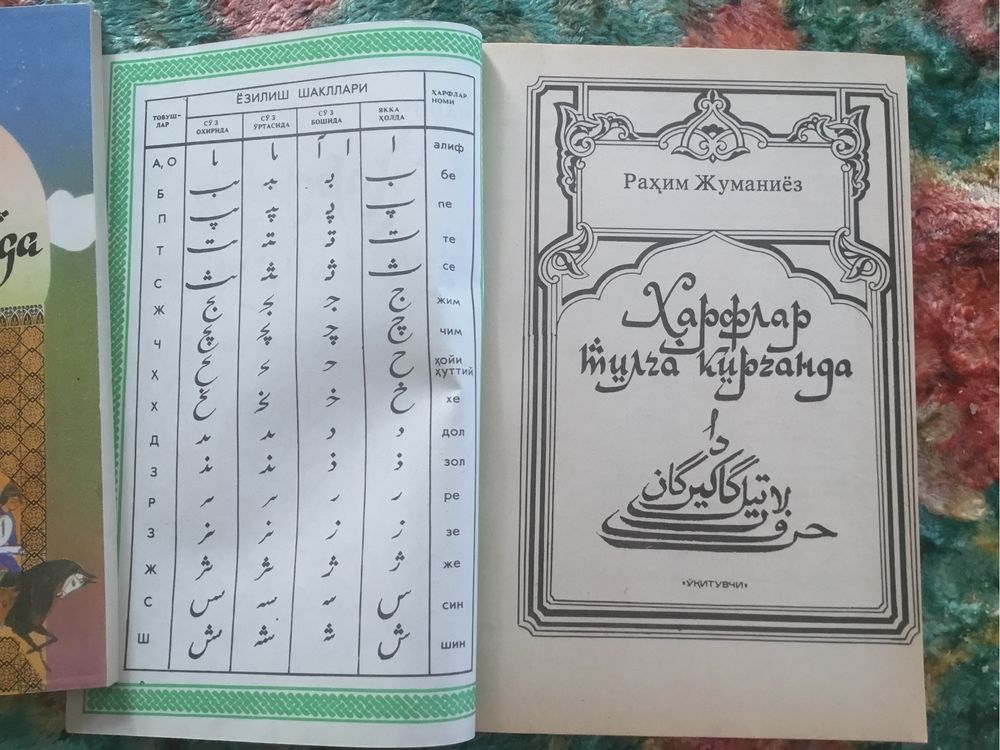 да
ЁЗИЛИШ ШАКЛЛАРИ
ТОВУШ-
ЛАР
СЎЗ
ОХИРИДА
СЎЗ
ЎРТАСИДА
СЎЗ
БОШИДА
ЯККА
ҲОЛДА
ҲАРФЛАР
НОМИ
А, О ـا ـا آ ا ا алиф
Б ـب ـبـ بـ ب бе
П ـپ ـپـ پـ پ пе
Т ـت ـتـ تـ ت те
С ـث ـثـ ثـ ث се
Ж ـج ـجـ جـ ج жим
Ч ـچ ـچـ چـ چ чим
Ҳ ـح ـحـ حـ ح ҳойи
ҳуттий
Х ـخ ـخـ خـ خ хе
Д ـد ـد د د дол
З ـذ ـذ ذ ذ зол
Р ـر ـر ر ر ре
З ـز ـز ز ز зе
Ж ـژ ـژ ژ ژ же
С ـس ـسـ سـ س син
Ш ـش ـشـ شـ ش шин
Раҳим Жуманиёз
Ҳарфлар
тилга кирганда
حرفلار تیلگا کیرگاندا
«ЎҚИТУВЧИ»